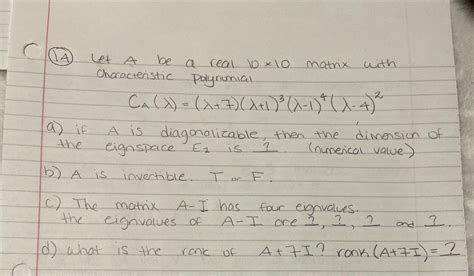 1A Let A be a real 10×10 matrix with
characteristic polynomial
C_A(λ) = (λ+7)(λ+1)³(λ-1)⁴(λ-4)²
a) if A is diagonalizable, then the dimension of
the eignspace E₂ is ?. (numerical value)
b) A is invertible. T or F.
c) The matrix A-I has four eignvalues.
the eignvalues of A-I are ?, ?, ? and ?.
d) what is the rank of A+7I? rank(A+7I)=?